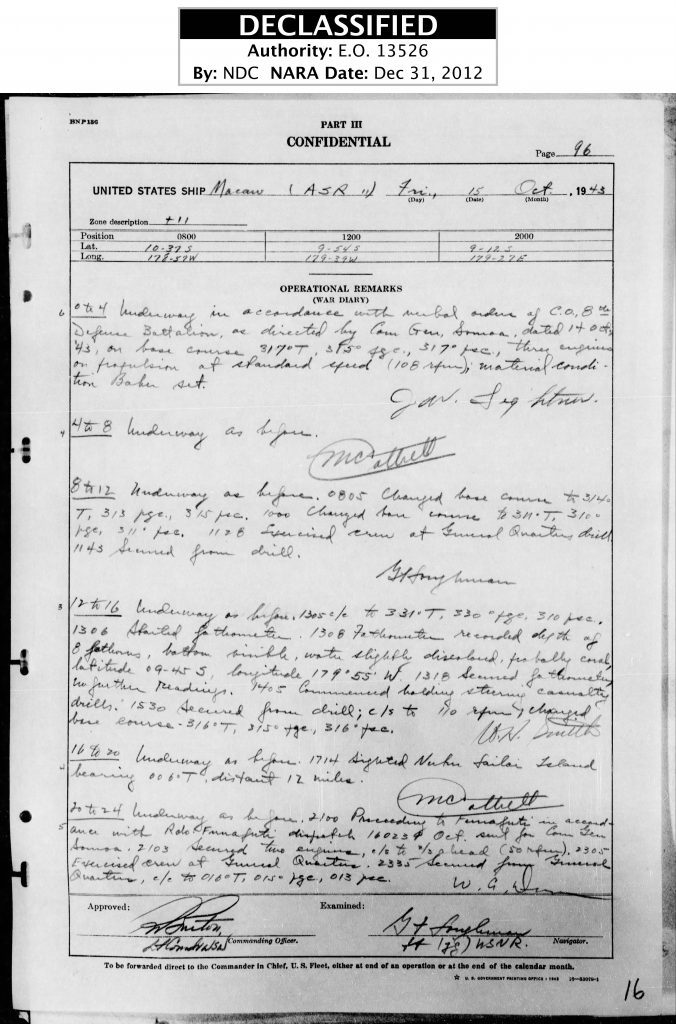 DECLASSIFIED
Authority: E.O. 13526
By: NDC NARA Date: Dec 31, 2012
BNP156
PART III
CONFIDENTIAL
Page 96
UNITED STATES SHIP Macaw (ASR 11) Fri., 15 Oct., 1943
(Day) (Date) (Month)
Zone description +11
Position 0800 1200 2000
Lat. 10-37 S 9-54 S 9-12 S
Long. 178-59 W 179-39 W 179-27 E
OPERATIONAL REMARKS
(WAR DIARY)
6 0 to 4 Underway in accordance with verbal orders of C.O., 8th
Defense Battalion, as directed by Com Gen, Samoa, dated 14 Oct
'43, on base course 317°T, 315° pgc., 317° psc., three engines
on propulsion at standard speed (108 rpm); material condi-
tion Baker set.
J.W. Leightner.
4 4 to 8 Underway as before.
8 to 12 Underway as before. 0805 Changed base course to 314°
T, 313 pgc., 315 psc. 1000 Changed base course to 311°T, 310°
pgc, 311° psc. 1128 Exercised crew at General Quarters drill
1143 Secured from drill.
G F Loughman
3 12 to 16 Underway as before. 1305 c/c to 331°T, 330° pgc, 310 psc.
1306 Started fathometer. 1308 Fathometer recorded depth of
8 fathoms, bottom visible, water slightly discolored, probably coral,
latitude 09-45 S, longitude 179° 55' W. 1318 Secured fathometer,
no further readings. 1405 Commenced holding steering casualty
drills. 1530 Secured from drill; c/s to 110 rpm; changed
base course - 316°T, 315° pgc, 316° psc.
W.N. Smith
4 16 to 20 Underway as before. 1714 Sighted Nuku Lailai Island
bearing 006°T, distant 12 miles.
20 to 24 Underway as before. 2100 Proceeding to Funafuti in accord-
5 ance with Rdo Funafuti dispatch 160239 Oct. sent for Com Gen
Samoa. 2103 Secured two engines, c/s to 1/3 ahead (50 rpm). 2305
Exercised crew at General Quarters. 2335 Secured from General
Quarters, c/c to 016°T, 015° pgc, 013 psc.
W. A.
Approved: Examined:
G F Loughman
Commanding Officer. Lt (jg) USNR. Navigator.
To be forwarded direct to the Commander in Chief, U.S. Fleet, either at end of an operation or at the end of the calendar month.
U. S. GOVERNMENT PRINTING OFFICE : 1943
16